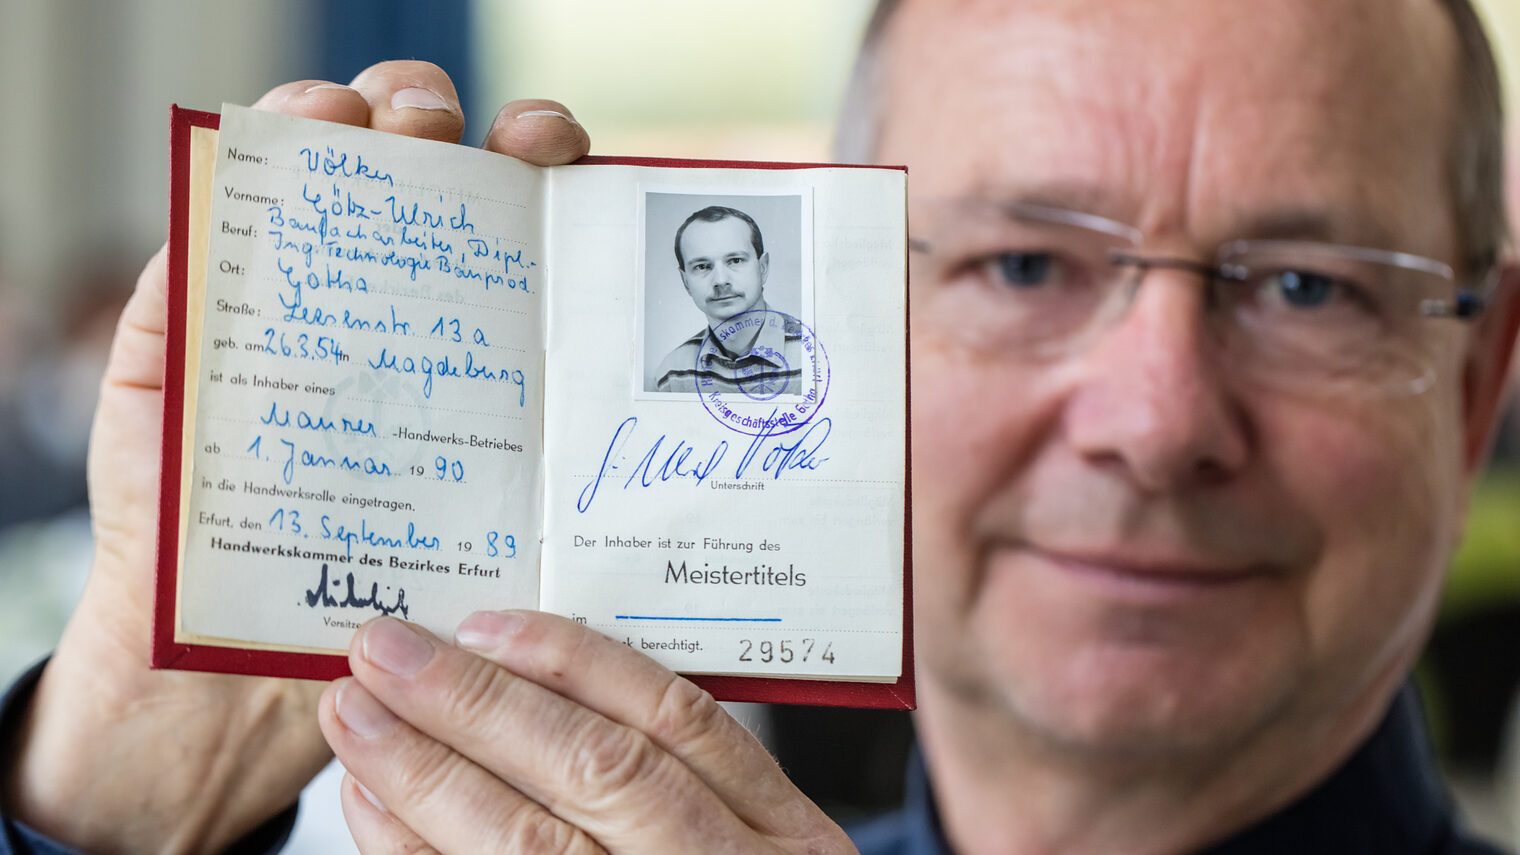 Name: Völker
Vorname: Götz-Ulrich
Beruf: Baufacharbeiter, Dipl.-
Ing. Technologie Bauprod.
Ort: Gotha
Straße: Leesenstr. 13 a
geb. am 26.3.54 in Magdeburg
ist als Inhaber eines
Maurer -Handwerks-Betriebes
ab 1. Januar 19 90
in die Handwerksrolle eingetragen.
Erfurt, den 13. September 19 89
Handwerkskammer des Bezirkes Erfurt
Vorsitze
Kreisgeschäftsstelle Gotha
Unterschrift
Der Inhaber ist zur Führung des
Meistertitels
im
k berechtigt. 29574